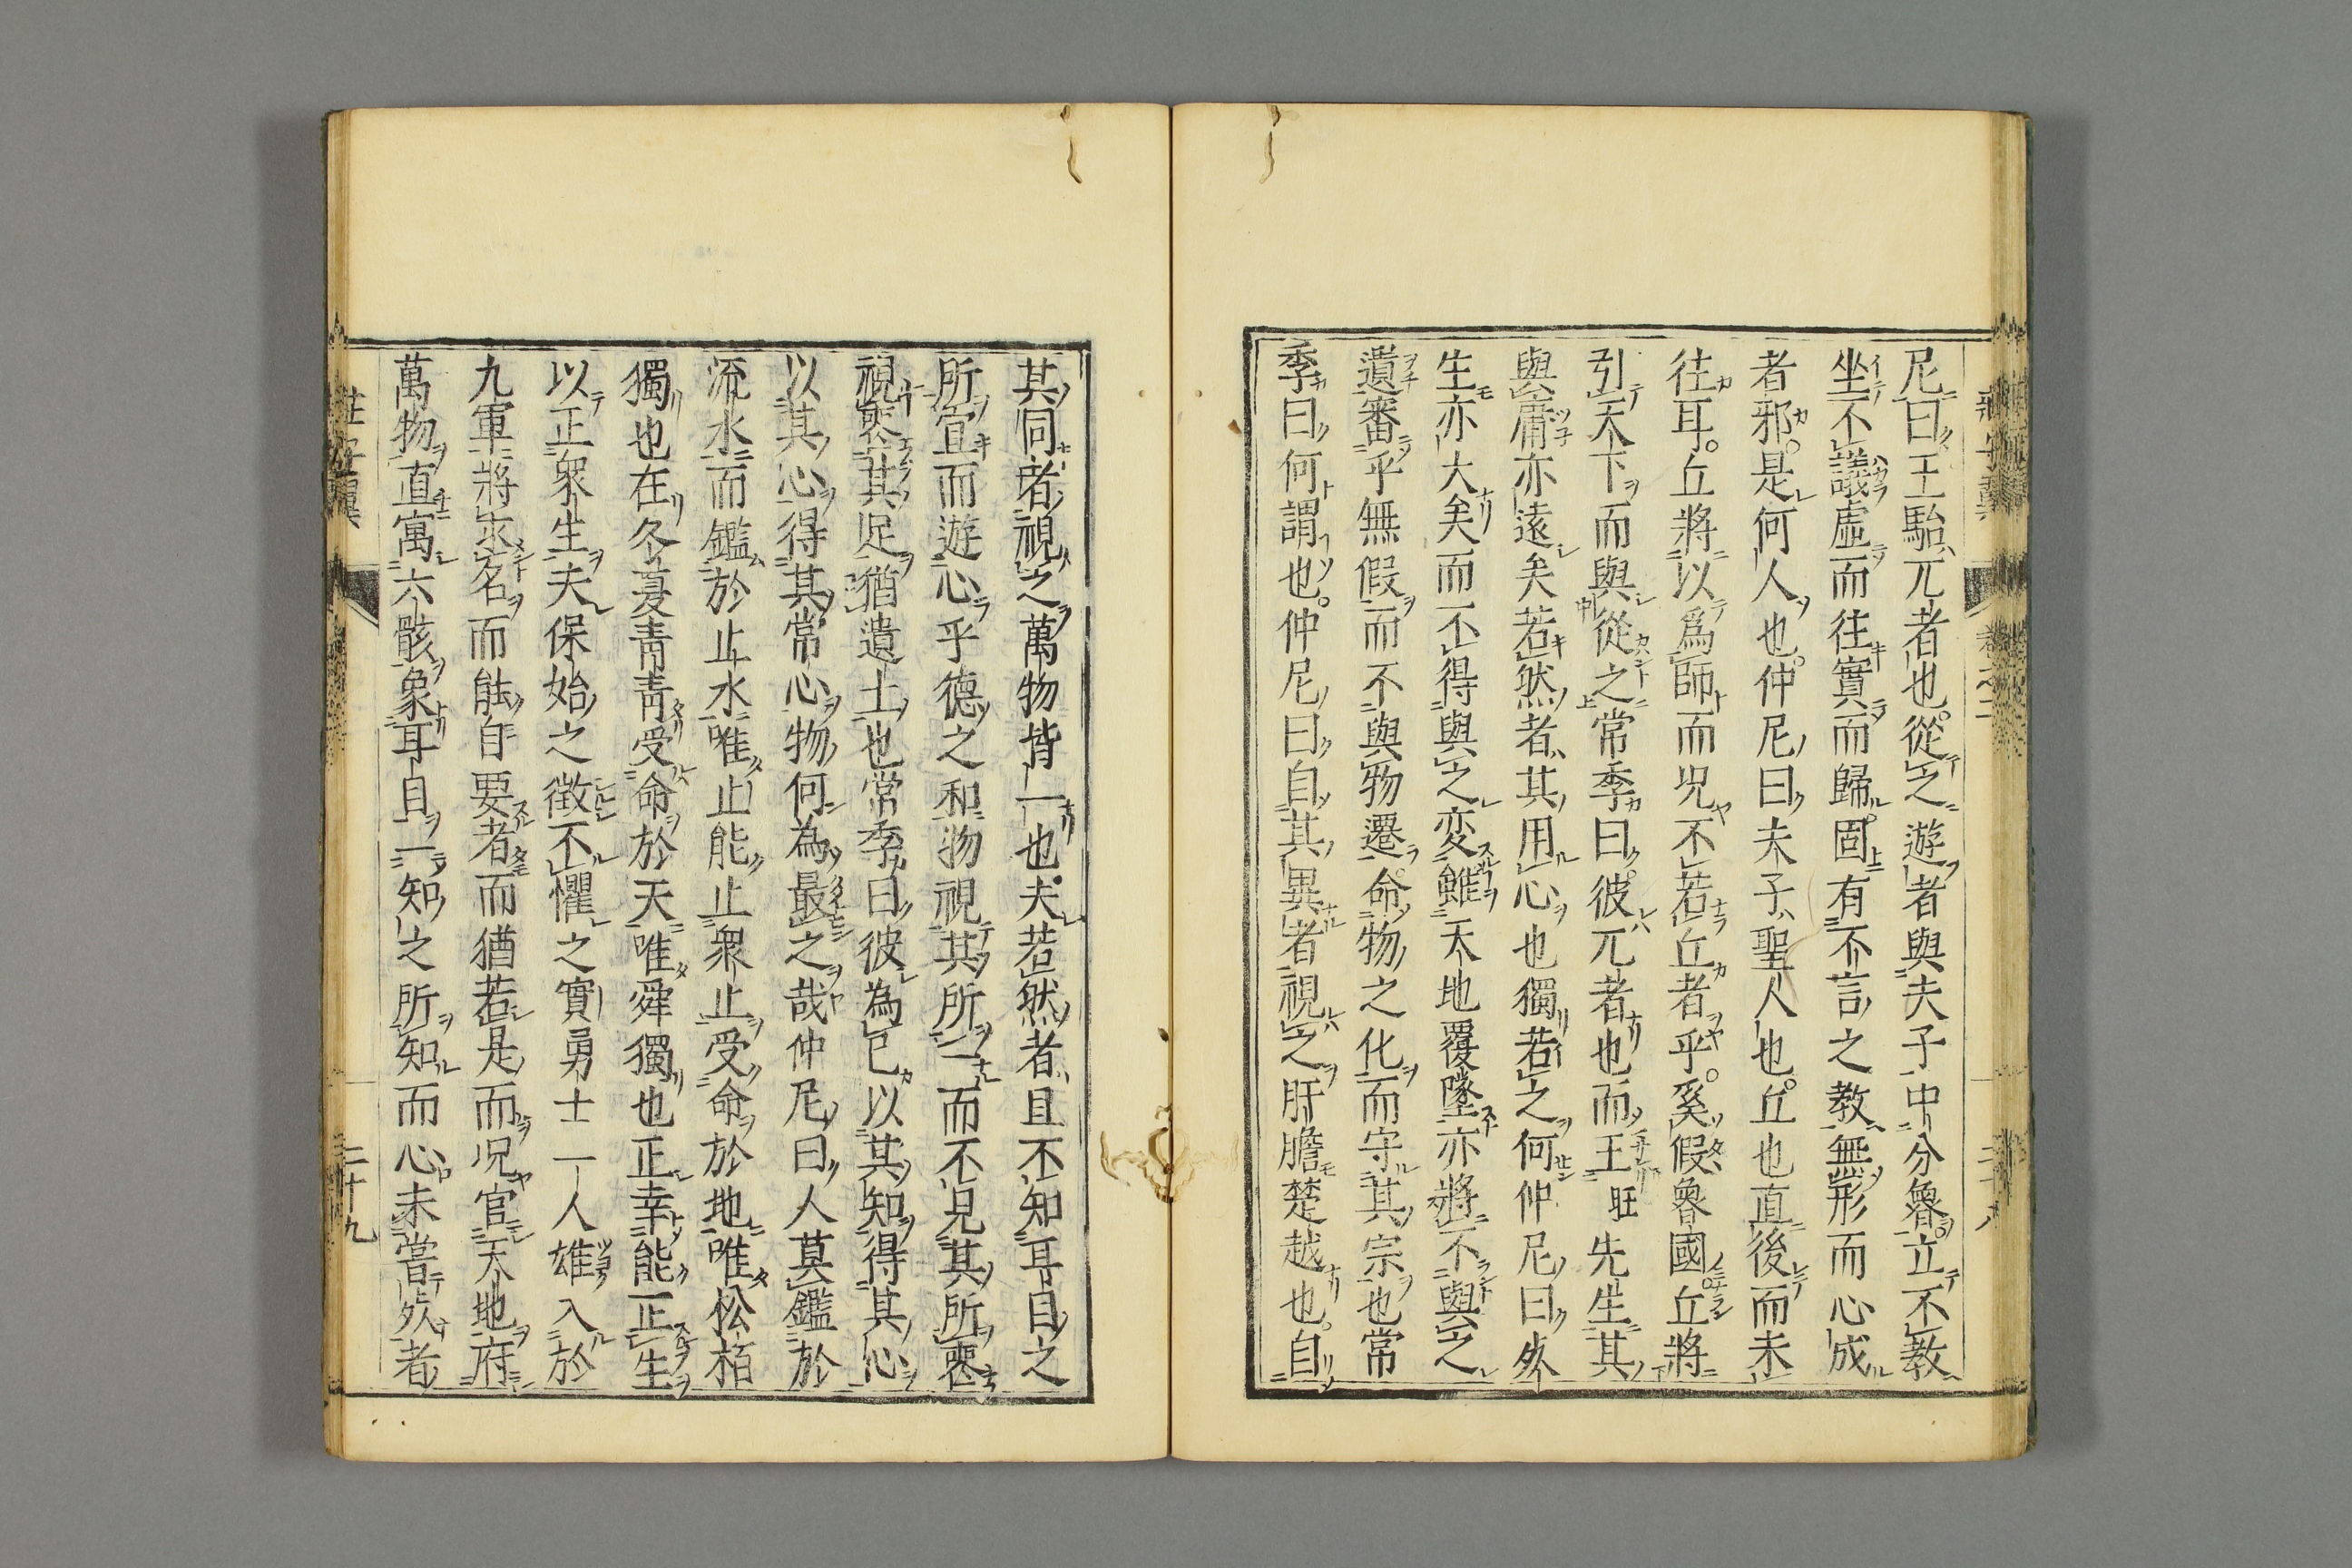 尼曰王駘兀者也從之遊者與夫子中分魯立不教
坐不議虛而往實而歸固有不言之教無形而心成
者邪是何人也仲尼曰夫子聖人也丘也直後而未
往耳丘將以為師而况不若丘者乎奚假魯國丘將
引天下而與從之常季曰彼兀者也而王旺先生其
與庸亦遠矣若然者其用心也獨若之何仲尼曰死
生亦大矣而不得與之变雖天地覆墜亦將不與之
遺審乎無假而不與物遷命物之化而守其宗也常
季曰何謂也仲尼曰自其異者視之肝膽楚越也自
其同者視之萬物皆一也夫若然者且不知耳目之
所宜而遊心乎德之和物視其所一而不見其所喪
視喪其足猶遺土也常季曰彼為已以其知得其心
以其心得其常心物何為最之哉仲尼曰人莫鑑於
流水而鑑於止水唯止能止衆止受命於地唯松栢
獨也在冬夏青青受命於天唯舜獨也正幸能正生
以正衆生夫保始之徵不懼之實勇士一人雄入於
九軍將求名而能自要者而猶若是而况官天地府
萬物直寓六骸象耳目一知之所知而心未嘗死者
莊子翼
二十九
卷之二